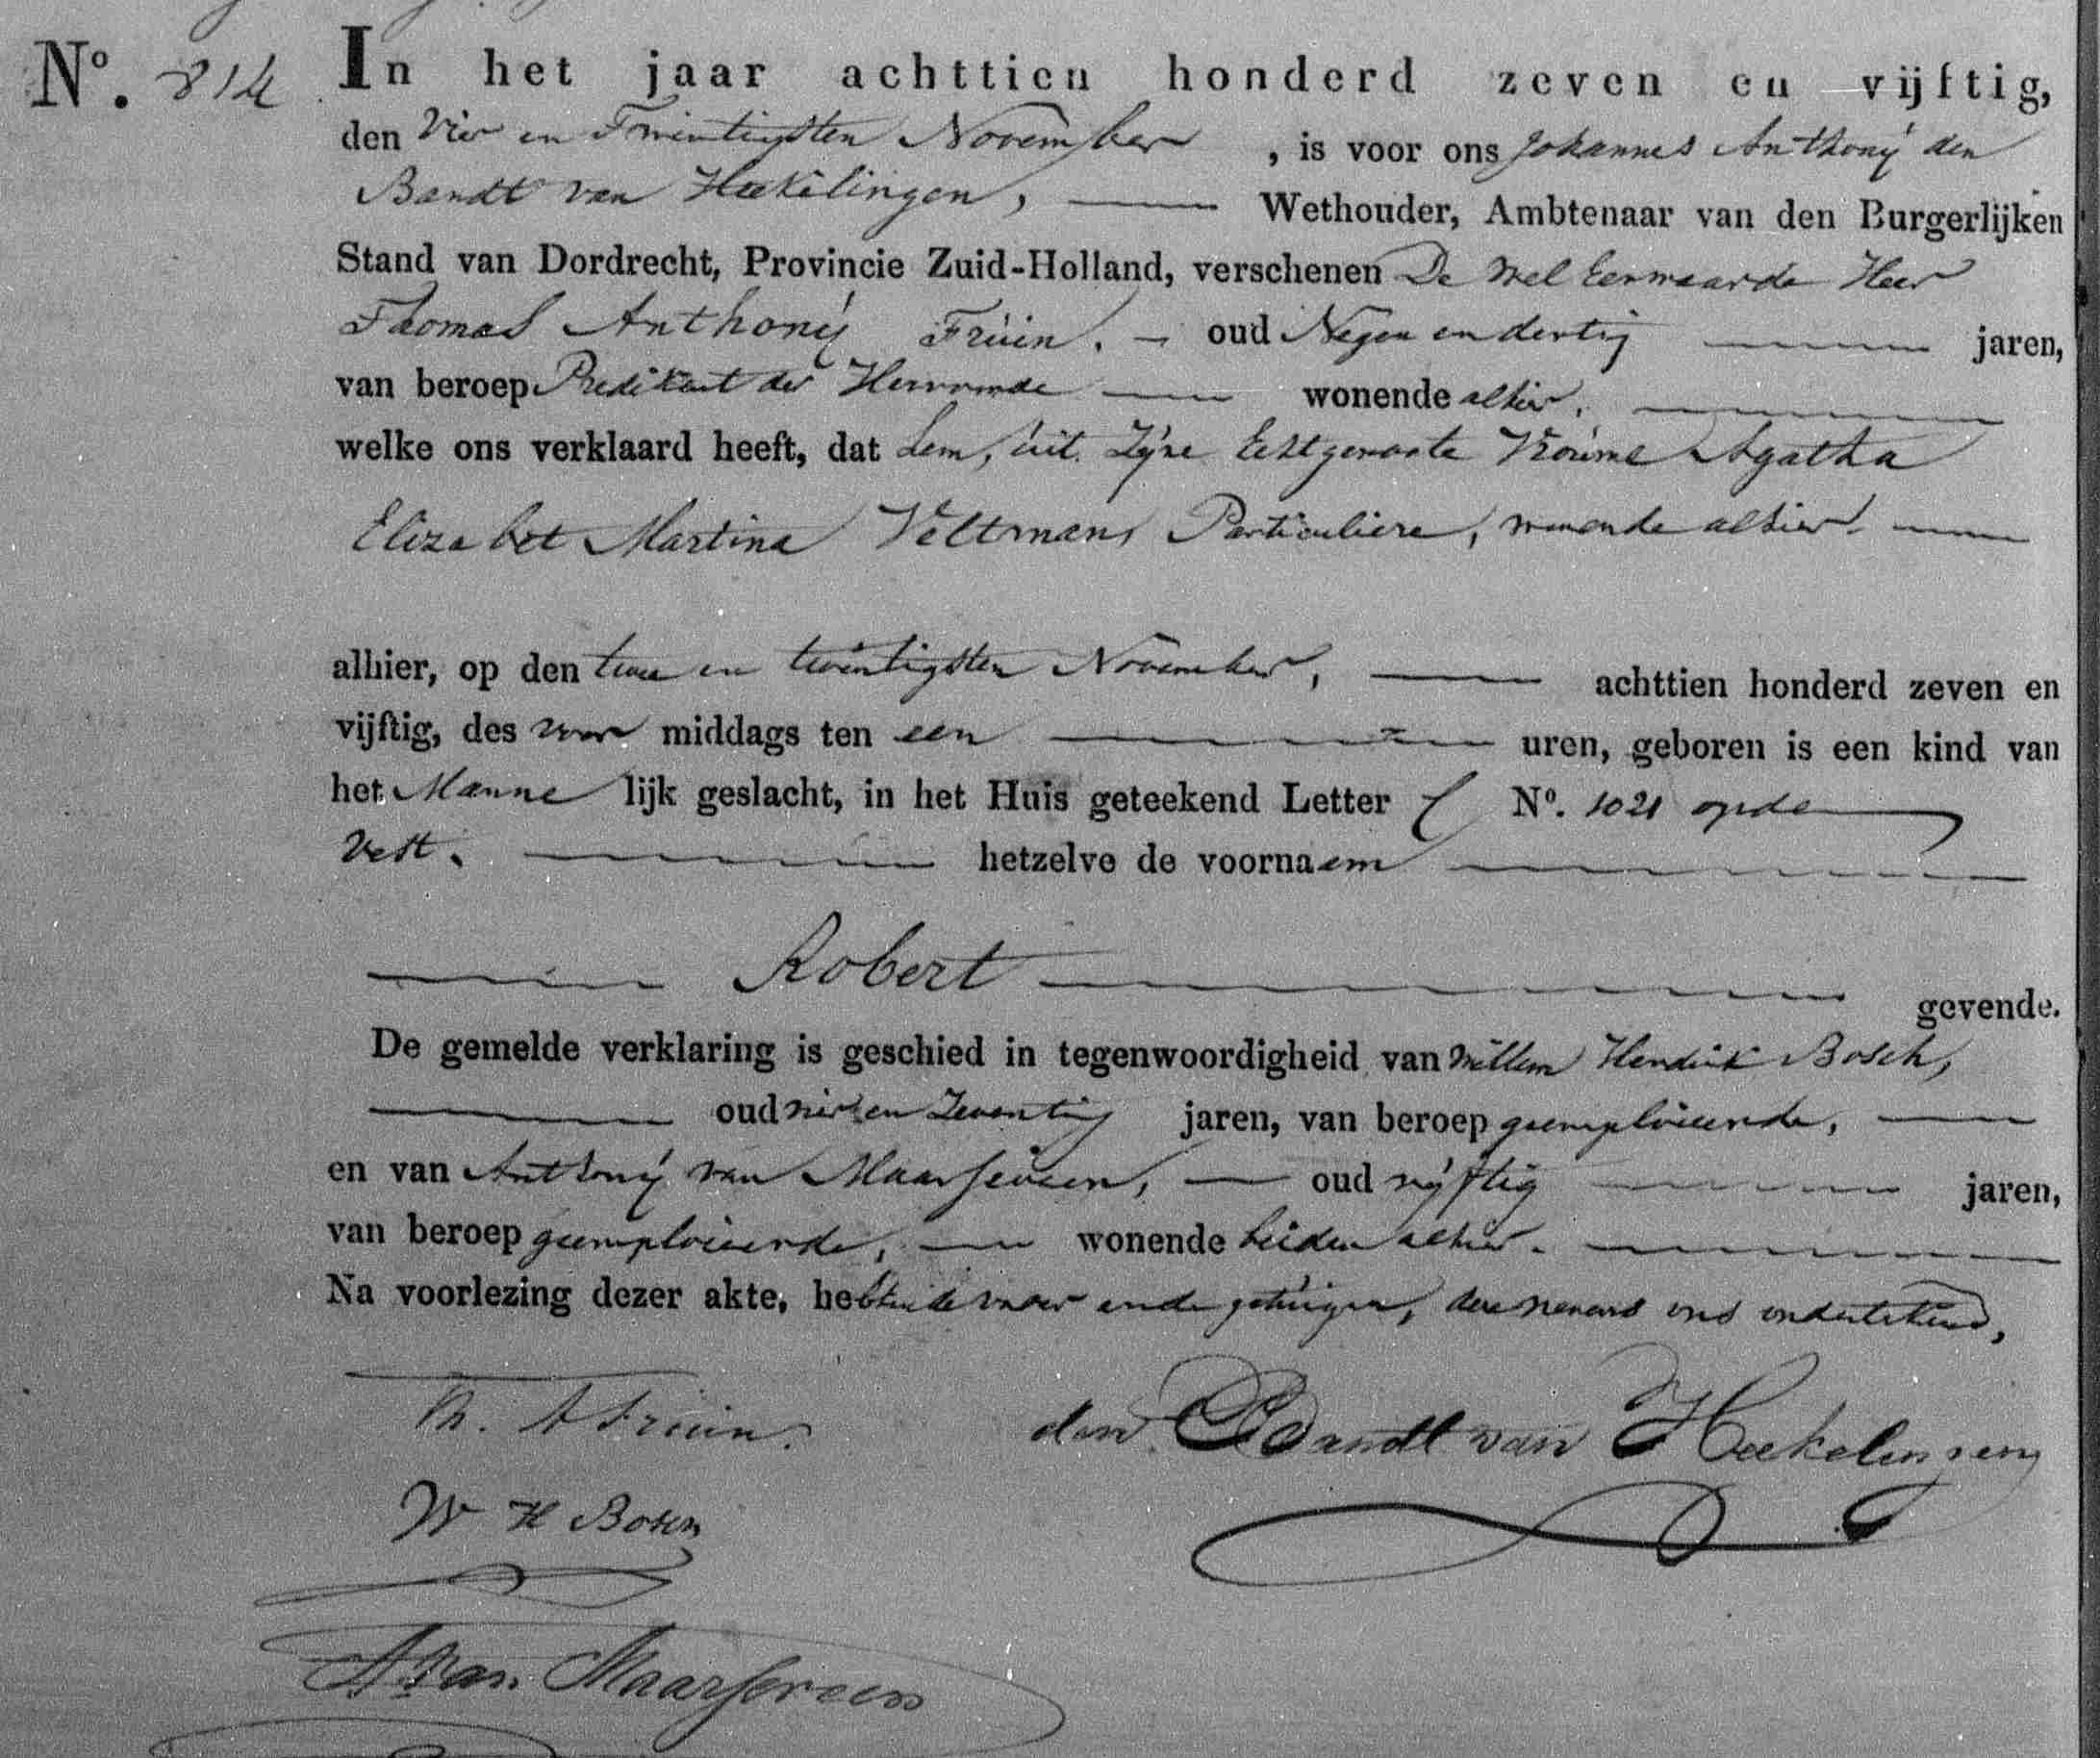 Nº. 814
In het jaar achttien honderd zeven en vijftig,
den Vier en Twintigsten November , is voor ons Johannes Anthonij den
Bandt van Heekelingen, Wethouder, Ambtenaar van den Burgerlijken
Stand van Dordrecht, Provincie Zuid-Holland, verschenen De Wel Eerwaarde Heer
Thomas Anthonij Fruin. oud Negen en dertig jaren,
van beroep Predikant der Hervormde wonende alhier.
welke ons verklaard heeft, dat hem, uit Zijne Echtgenoote Vrouwe Agatha
Elizabet Martina Veltman, Particuliere, wonende alhier.
alhier, op den twee en twintigsten November, achttien honderd zeven en
vijftig, des voor middags ten een uren, geboren is een kind van
het Manne lijk geslacht, in het Huis geteekend Letter C Nº. 1021 op de
Vest. hetzelve de voornaem
Robert
gevende.
De gemelde verklaring is geschied in tegenwoordigheid van Willem Hendrik Bosch,
oud vier en Zeventig jaren, van beroep geemploieerde,
en van Anthonij van Maarseveen, oud vijftig jaren,
van beroep geemploieerde, wonende beiden alhier.
Na voorlezing dezer akte, hebben de vader en de getuigen, deze nevens ons onderteekend,
Th. A Fruin.
den Bandt van Heekelingen
W H Bosch
A van Maarseveen